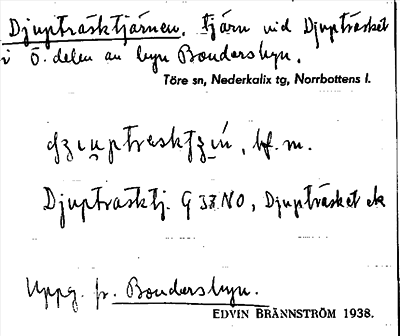 Djupträsktjärnen. tjärn vid Djupträsket
i ö. delen av byn Bondersbyn.
Töre sn, Nederkalix tg, Norrbottens l.
bf. m.
Djupträsktj. G 33 NO, Djupträsket ek
Uppg. fr. Bondersbyn.
EDVIN BRÄNNSTRÖM 1938.